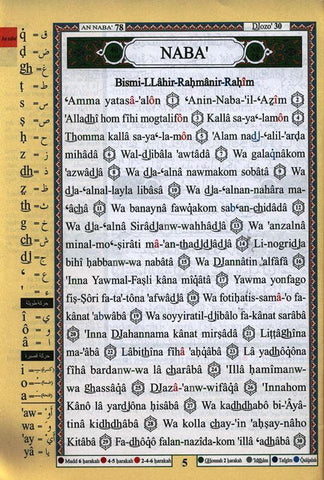 AN NABA' 78
Djozo' 30
NABA'
Bismi-LLâhir-Raḥmânir-Raḥîm
ʻAmma yatasâ-'alôn 1 ʻAnin-Naba-'il-ʻAẓîm 2
'Alladhî hom fîhi mogtalifôn 3 Kallâ sa-yaʻ-lamôn 4
Thomma kallâ sa-yaʻ-la-môn 5 'Alam nadj-ʻalil-'arḍa
mihâdâ 6 Wal-djibâla 'awtâdâ 7 Wa galaqnâkom
'azwâdjâ 8 Wa dja-ʻalnâ nawmakom sobâtâ 9 Wa
dja-ʻalnal-layla libâsâ 10 Wa dja-ʻalnan-nahâra ma-
ʻâchâ 11 Wa banaynâ fawqakom sabʻan-chidâdâ 12
Wa dja-ʻalnâ Sirâdjanw-wahhâdjâ 13 Wa 'anzalnâ
minal-moʻ-ṣirâti mâ-'an-thadjdjâdjâ 14 Li-nogridja
bihî ḥabbanw-wa nabâtâ 15 Wa Djannâtin 'alfâfâ 16
'Inna Yawmal-Faṣli kâna mîqâtâ 17 Yawma yonfago
fiṣ-Ṣôri fa-ta'-tôna 'afwâdjâ 18 Wa fotiḥatis-samâ-'o fa-
kânat 'abwâbâ 19 Wa soyyiratil-djibâlo fa-kânat sarâbâ
20 'Inna DJahannama kânat mirṣâdâ 21 Liṭṭâghîna
ma-'âbâ 22 Lâbithîna fîhâ 'aḥqâbâ 23 Lâ yadhôqôna
fîhâ bardanw-wa lâ charâbâ 24 'Illâ ḥamîmanw-
wa ghassâqâ 25 DJazâ-'anw-wifâqâ 26 'Innahom
Kânô lâ yardjôna ḥisâbâ 27 Wa kadhdhabô bi-'Âyâ-
tinâ kidhdhâbâ 28 Wa kolla chay-'in 'aḥṣay-nâho
Kitâbâ 29 Fa-dhôqô falan-nazîda-kom 'illâ ʻadhâbâ 30
q̂ = ق
ḍ = ض
gh = غ
ṣ = ص
ṭ = ط
ḥ = ح
g = خ
th = ث
s = س
h = ه
z = ز
dh = ذ
ẓ = ظ
t = ت
ch = ش
dj = ج
ʻ = ع
' = ء
حركة طويلة
î = ي
ô = و
â = ا
حركة قصيرة
i =
o =
a =
'aw = أو
wa = و
'ay = أي
ya = يا
Madd 6 ḥarakah
4-5 ḥarakah
2-4-6 ḥarakah
5
Ghonnah 2 ḥarakah
'Idghâm
Tafgîm
Qalqalah